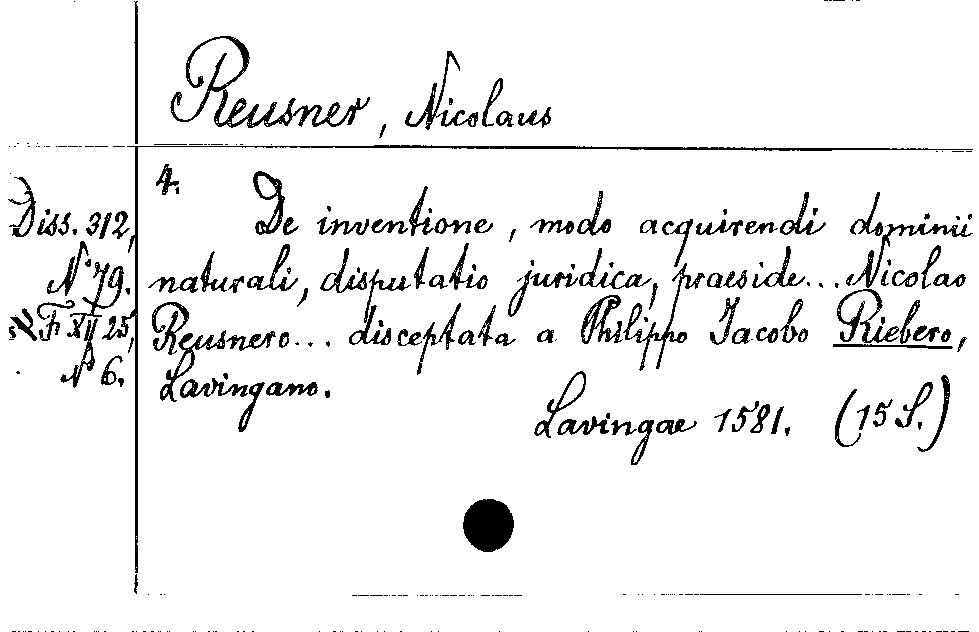 Reusner, Nicolaus
4.
Diss. 312,
N° 79.
F XII 25,
N° 6.
De inventione, modo acquirendi dominii
naturali, disputatio juridica, praeside... Nicolao
Reusnero... disceptata a Philippo Jacobo Riebero,
Lavingano.
Lavingae 1581. (15 S.)